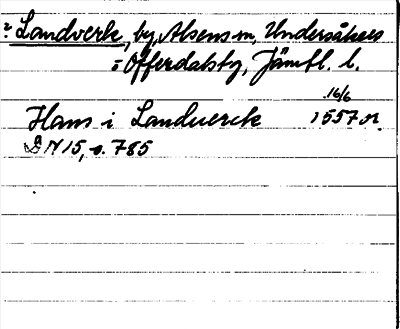 ? Landverk, by, Alsens sn, Undersåkers
= Offerdalstg, Jämtl. l.
16/6
Hans i Landuerck 1557 or.
DN 15, s. 785